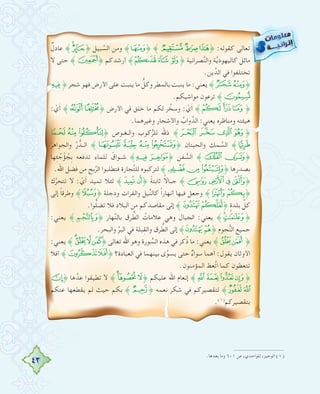 معلومات إثرائية
تعالى كقوله: ﴿هَٰذَا صِرَاطٌ مُسْتَقِيمٌ﴾ ﴿وَمِنْهَا﴾ ومن السَّبيل ﴿جَائِرٌ﴾ عادلٌ
مائل كاليهوديَّة والنَّصرانية ﴿وَلَوْ شَاءَ لَهَدَاكُمْ﴾ أرشدكم ﴿أَجْمَعِينَ﴾ حتى لا
تختلفوا في الدِّين.
﴿وَمِنْهُ شَجَرٌ﴾ يعني: ما ينبت بالمطر وكلُّ ما ينبت على الأرض فهو شجر ﴿فِيهِ
تُسِيمُونَ﴾ ترعون مواشيكم.
﴿وَمَا ذَرَأَ لَكُمْ﴾ أيْ: وسخَّر لكم ما خلق في الأرض ﴿مُخْتَلِفًا أَلْوَانُهُ﴾ أيْ:
هيئته ومناظره يعني: الدوابَّ والأشجار وغيرهما.
﴿وَهُوَ الَّذِي سَخَّرَ الْبَحْرَ﴾ ذلَّله للرُّكوب والغوص ﴿لِتَأْكُلُوا مِنْهُ لَحْمًا
طَرِيًّا﴾ السَّمك والحيتان ﴿وَتَسْتَخْرِجُوا مِنْهُ حِلْيَةً تَلْبَسُونَهَا﴾ الدرَّ والجواهر
﴿وَتَرَى الْفُلْكَ﴾ السُّفن ﴿مَوَاخِرَ فِيهِ﴾ شواقَّ للماء تدفعه بجؤجئها
بصدرها ﴿وَلِتَبْتَغُوا مِنْ فَضْلِهِ﴾ لتركبوه للتِّجارة فتطلبوا الرِّبح من فضل الله.
﴿وَأَلْقَىٰ فِي الْأَرْضِ رَوَاسِيَ﴾ جبالاً ثابتةً ﴿أَنْ تَمِيدَ﴾ لئلا تميد أيْ: لا تتحرَّك
﴿بِكُمْ وَأَنْهَارًا﴾ وجعل فيها أنهاراً كالنِّيل والفرات ودجلة ﴿وَسُبُلًا﴾ وطرقاً إلى
كلِّ بلدة ﴿لَعَلَّكُمْ تَهْتَدُونَ﴾ إلى مقاصدكم من البلاد فلا تضلوا.
﴿وَعَلَامَاتٍ﴾ يعني: الجبال وهي علاماتُ الطُّرق بالنَّهار ﴿وَبِالنَّجْمِ﴾ يعني:
جميع النُّجوم ﴿هُمْ يَهْتَدُونَ﴾ إلى الطرق والقبلة في البرِّ والبحر.
﴿أَفَمَنْ يَخْلُقُ﴾ يعني: ما ذكر في هذه السُّورة وهو الله تعالى ﴿كَمَنْ لَا يَخْلُقُ﴾ يعني:
الأوثان يقول: أهما سواءٌ حتى يسوَّى بينهما في العبادة؟ ﴿أَفَلَا تَذَكَّرُونَ﴾ أفلا
تتعظون كما اتَّعظ المؤمنون.
﴿وَإِنْ تَعُدُّوا نِعْمَةَ اللَّهِ﴾ إنعام الله عليكم ﴿لَا تُحْصُوهَا﴾ لا تطيقوا عدَّها ﴿إِنَّ
اللَّهَ لَغَفُورٌ﴾ لتقصيركم في شكر نعمه ﴿رَحِيمٌ﴾ بكم حيث لم يقطعها عنكم
بتقصيركم(١)
(١) الوجيز، للواحدي، ص ٦٠١ وما بعدها.
٤٣